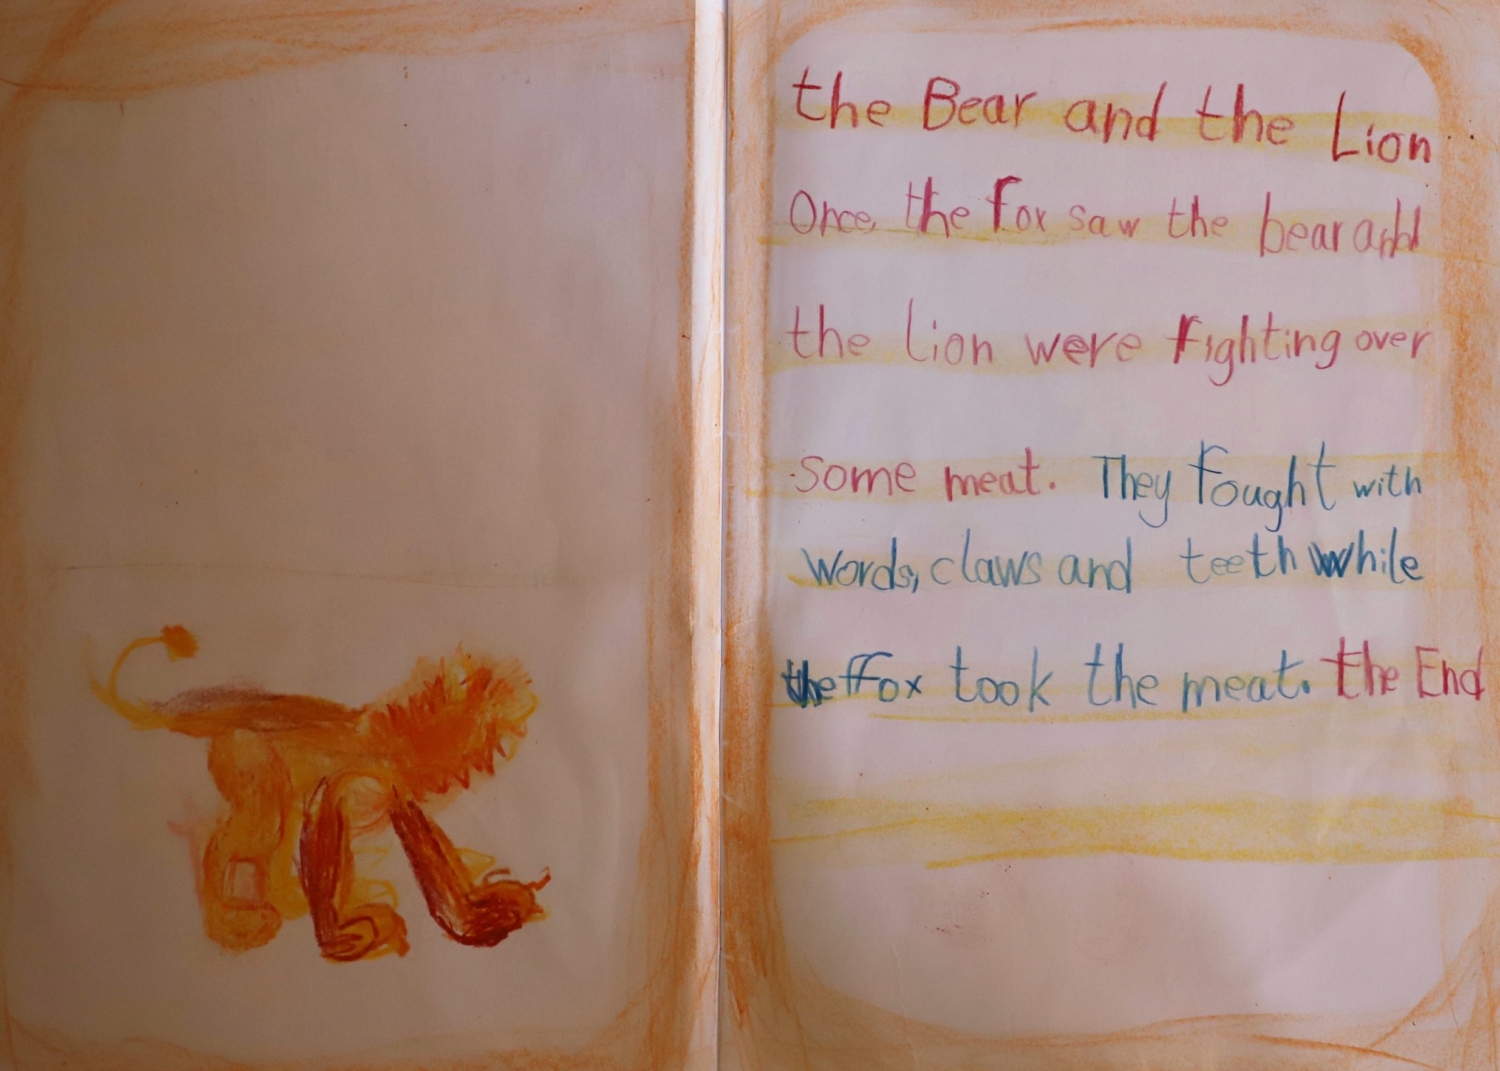 the Bear and the Lion
Once, the fox saw the bear and
the lion were fighting over
some meat. They fought with
words, claws and teeth while
the fox took the meat. the End